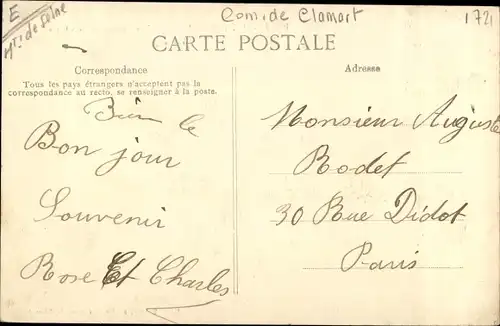 E
Hts de Seine
Com. de Clamart
1721
CARTE POSTALE
Correspondance
Tous les pays étrangers n'acceptent pas la
correspondance au recto, se renseigner à la poste.
Bien le
Bon jour
Souvenir
Rose Et Charles
Adresse
Monsieur Auguste
Rodet
30 Rue Didot
Paris